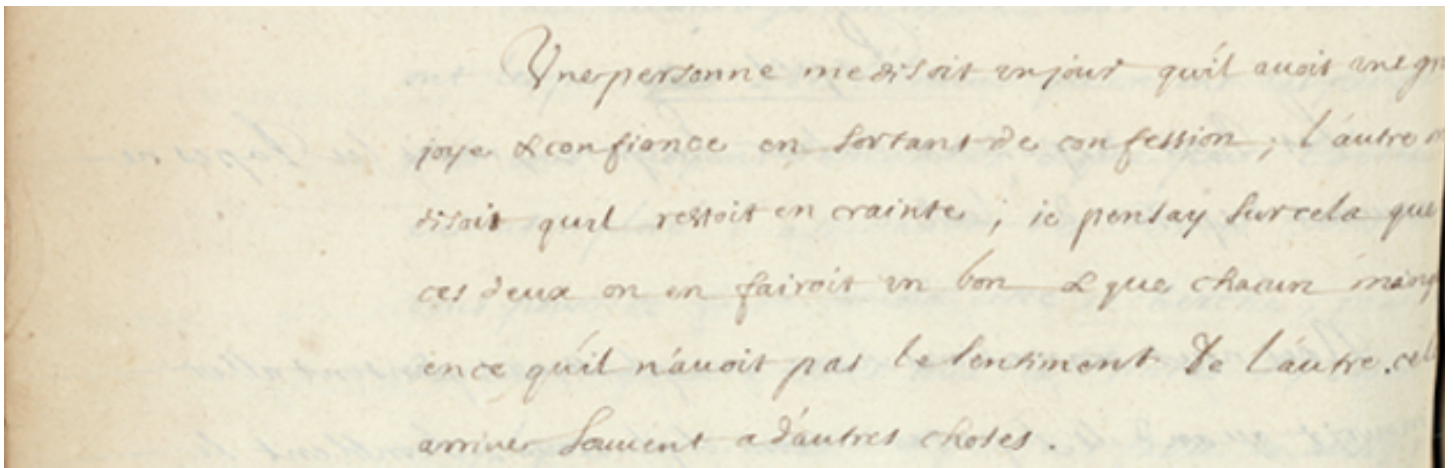 Une personne me disoit un jour qu'il auoit une
joye & confiance en sortant de confession ; l'autre
disoit quil restoit en crainte ; ie pensay sur cela que
ces deux on en fairoit un bon & que chacun
ence qu'il n'auoit pas le sentiment de l'autre.
arriue souuent a d'autres choses.